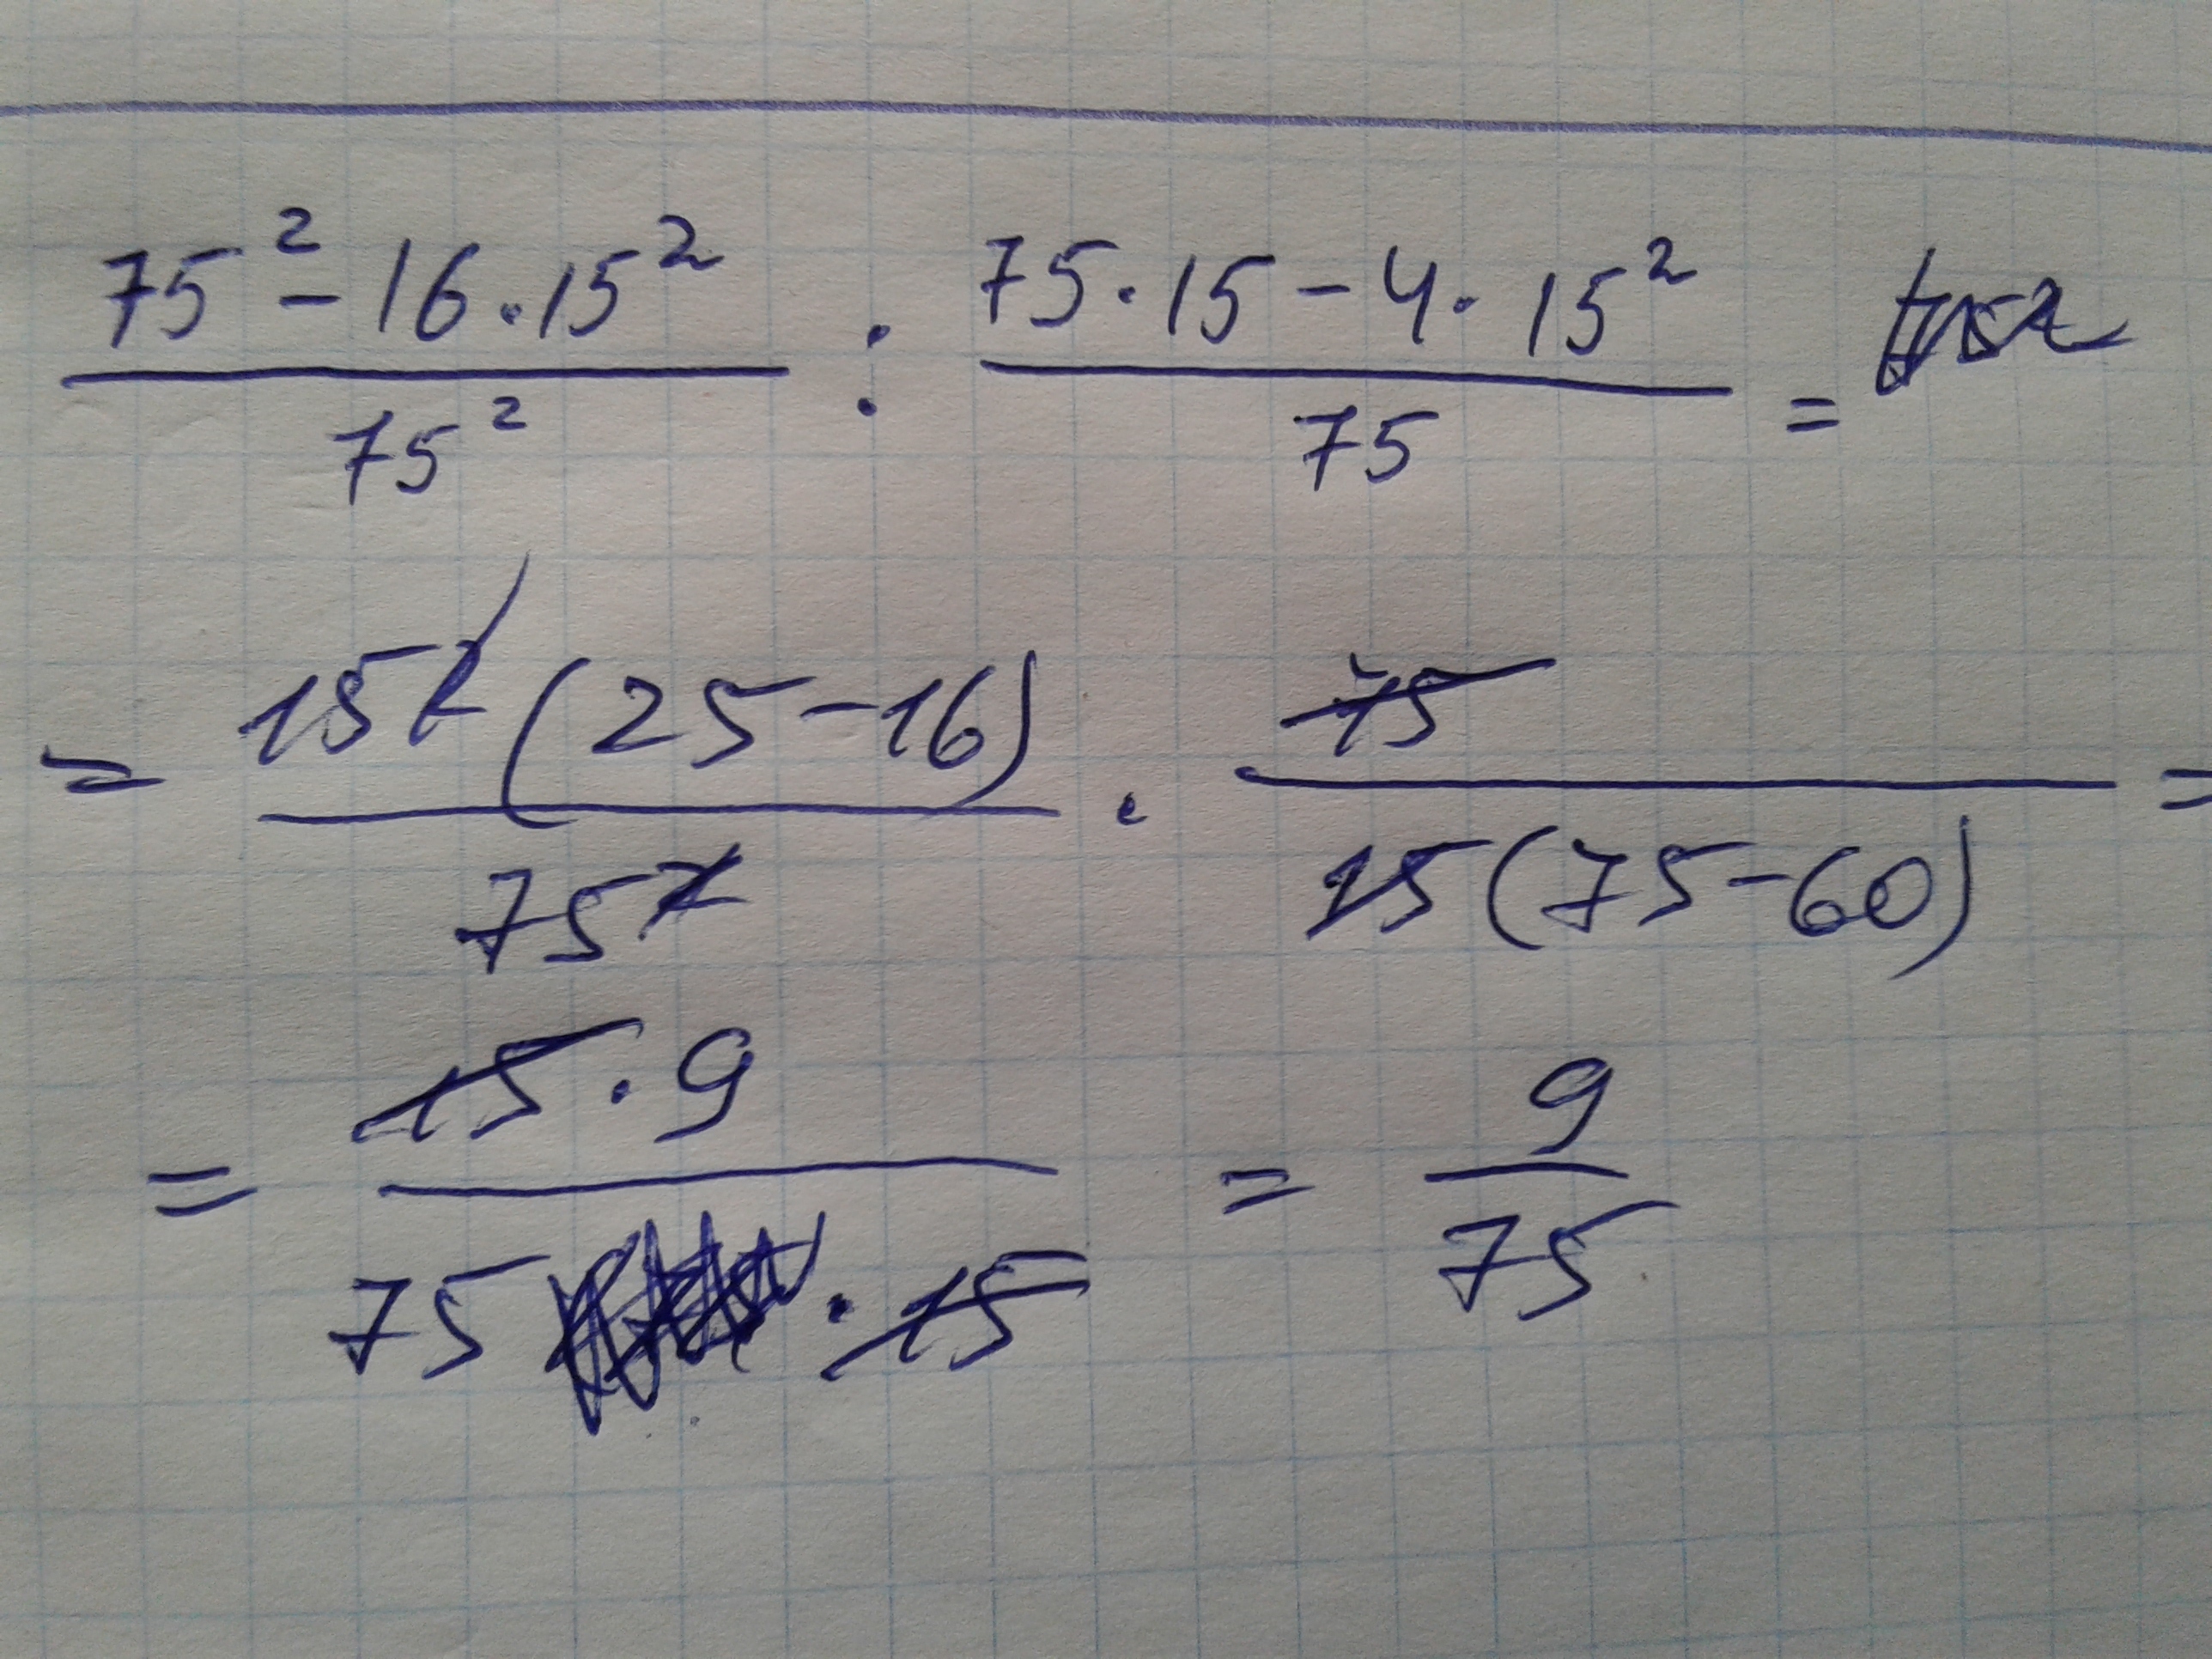 (75² - 16 · 15²) / 75² : (75 · 15 - 4 · 15²) / 75 =
= 15²(25 - 16) / 75² · 75 / 15(75 - 60) =
= 15 · 9 / 75 · 15 = 9 / 75